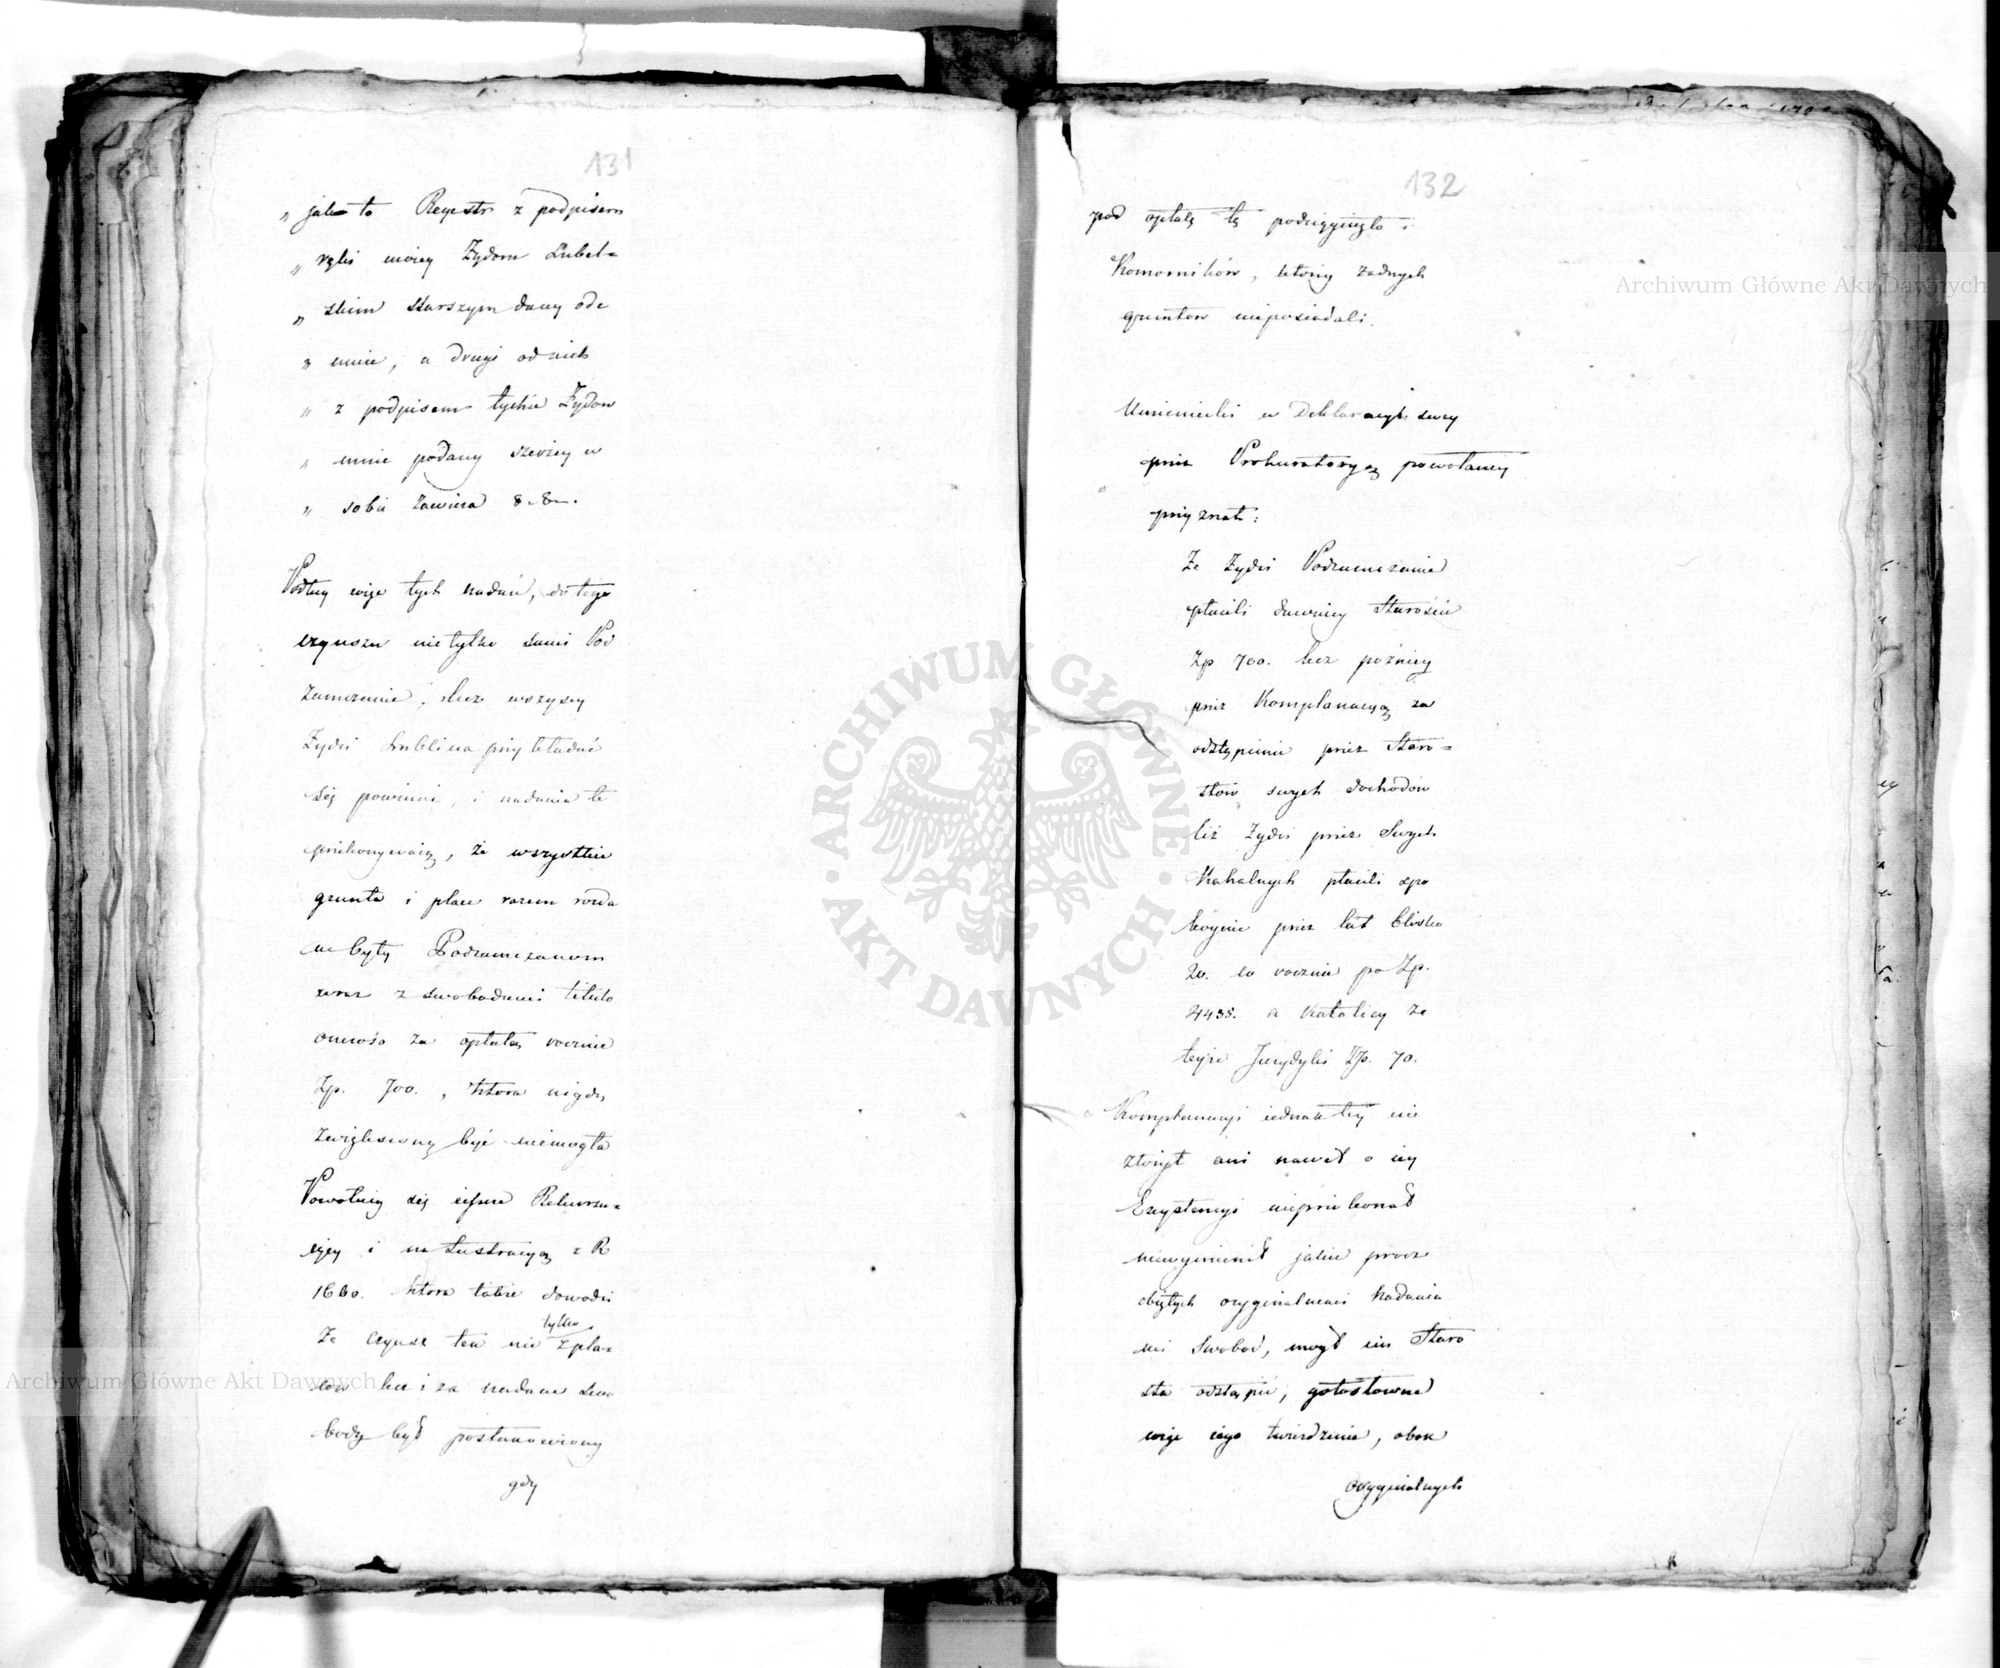 131
„ jako to Regestr z podpisem
„ ręki moiey Żydom Lubel=
„ skim starszym dany ode
„ mnie, a drugi od nich
„ z podpisem tychże Żydow
„ mnie podany szerzey w
„ sobie zawiera &c &c.
Podług więc tych nadań, do tego
czynszu nie tylko sami Pod
zamczanie, lecz wszyscy
Żydzi Lublina przykładać
się powinni, i nadania te
przekonywaią, że wszystkie
grunta i place razem rozda
ne były Podzamczanom
wraz z swobodami titulo
oneroso za opłatą rocznie
Zp. 700., ktora nigdy
zwiększoną być niemogła
Powołuią się ieszcze Rekursu=
iący i na Lustracyą z R
1660. ktora także dowodzi
że czynsz ten nie tylko z pla=
cow lecz i za nadane swo
body był postanowiony
gdy
132
pod opłatę tę podciągnięto i
Komorników, którzy żadnych
gruntow nieposiadali.
Umieniecki w Deklaracyi swey
przez Prokuratoryą powołaney
przyznał:
Że Żydzi Podzamczanie
płacili dawniey Staroście
Zp 700. lecz poźniey
przez Komplanacyą za
odstąpienie przez Staro=
stow swych dochodów
też Żydzi przez Swych
Kahalnych płacili spo
koynie przez lat blisko
20. co rocznie po Zp.
4438. a Katolicy ze
teyże Jurydyki Zp. 70.
Komplanacyi iednak tey nie
złożył ani nawet o iey
Exystencyi nieprzekonał
niewymienił jakie procz
obiętych oryginalnemi Nadania
mi Swobod, mogł im Staro
sta odstąpić, gołosłowne
więc iego twierdzenie, obok
oryginalnych
Archiwum Główne Akt Dawnych
Archiwum Główne Akt Dawnych
ARCHIWUM GŁÓWNE AKT DAWNYCH